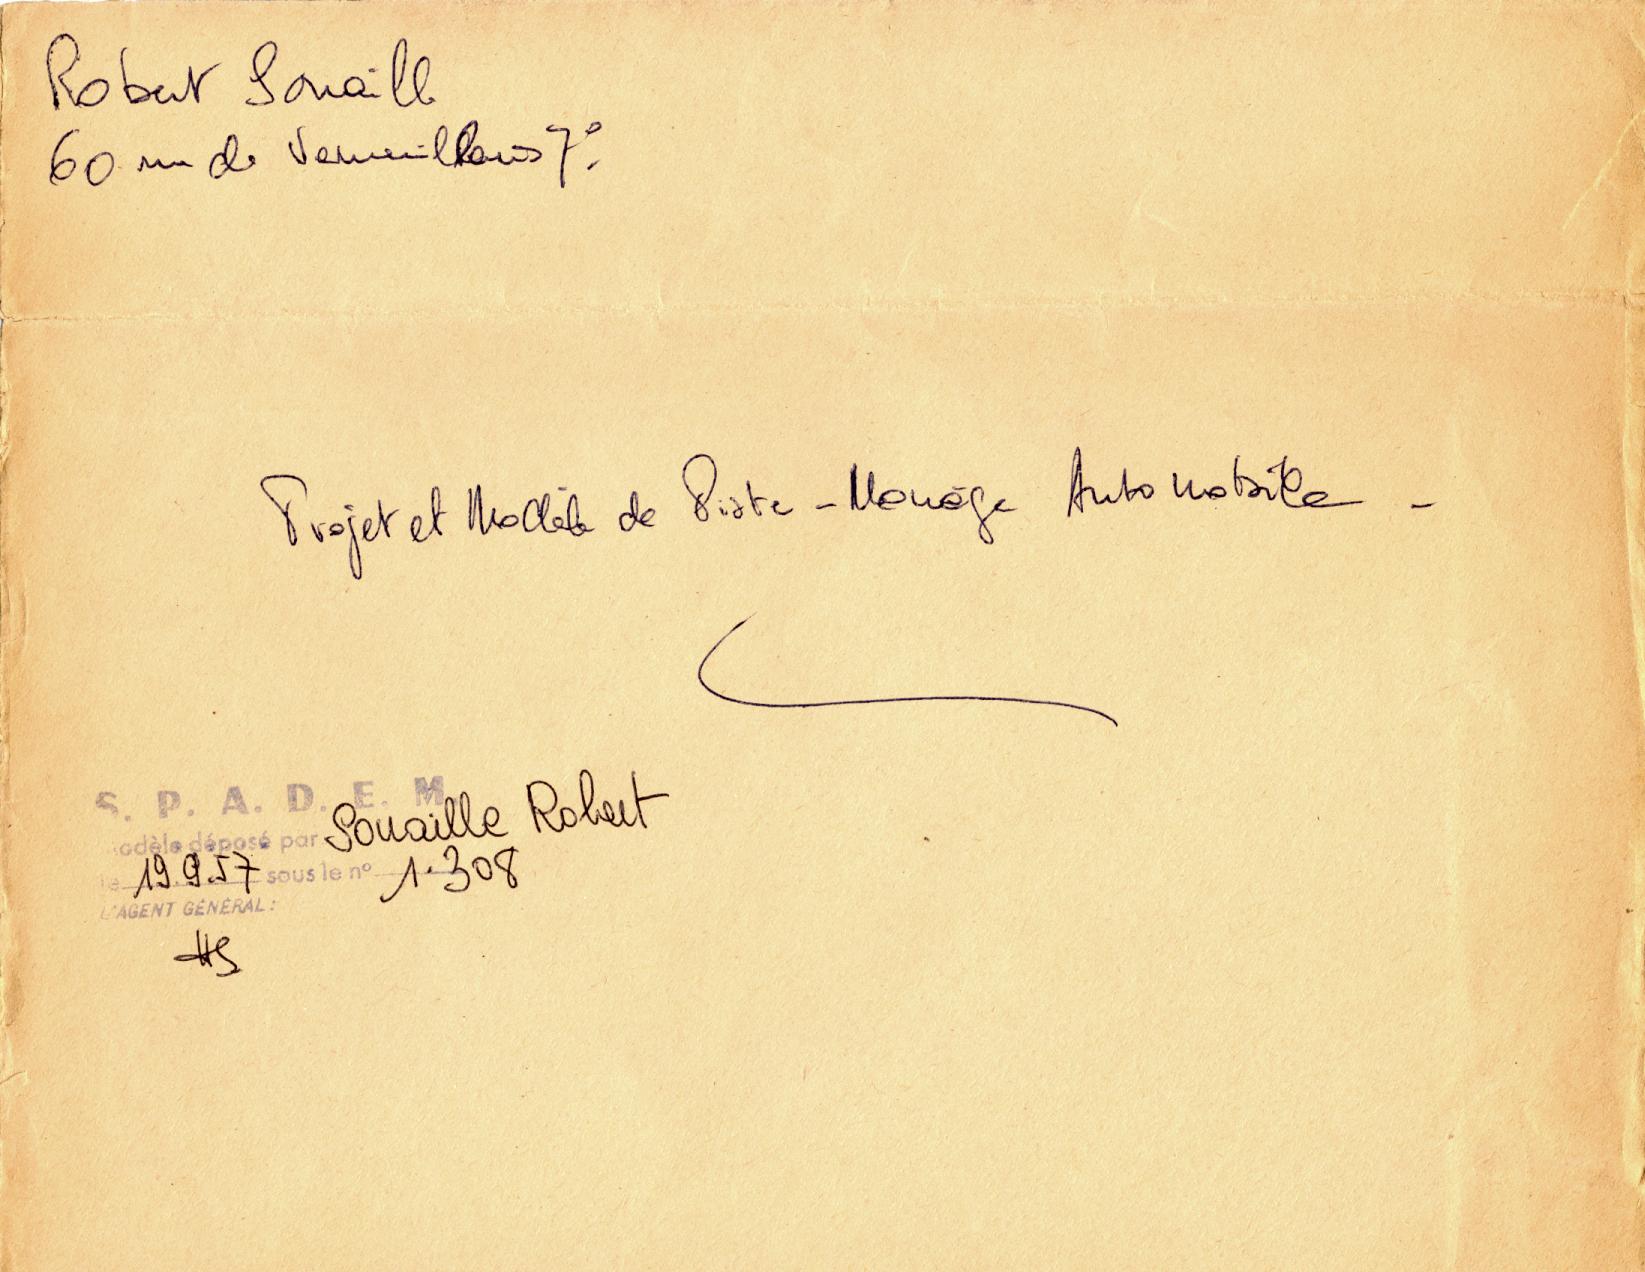 Robert Souaille
60 rue de Verneuil Paris 7e.
Projet et Modèle de Piste - Manège Automobile -
S. P. A. D. E. M
Modèle déposé par Souaille Robert
le 19.9.57 sous le n° 1.308
L'AGENT GÉNÉRAL :
HS